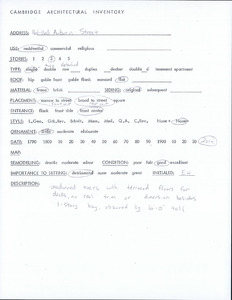 CAMBRIDGE ARCHITECTURAL INVENTORY
ADDRESS: Street
USE: residential commercial religious
STORIES: 1 2 3 4 5
detached
TYPE: single double row duplex decker double d tenement apartment
ROOF: hip gable front gable flank mansard flat
MATERIAL: frame brick SIDING: original subsequent
PLACEMENT: narrow to street broad to street square
ENTRANCE: flank front side front center
STYLE: L.Geo, Gk.Rev, Brktd, Man, Med, Q.A, C.Rev, None
ORNAMENT: little moderate elaborate
DATE: 1790 1800 10 20 30 40 50 60 70 80 90 1900 10 20 30
MAP:
REMODELING: drastic moderate minor CONDITION: poor fair good excellent
IMPORTANCE TO SETTING: detrimental none moderate great INITIALED:
DESCRIPTION:
with terraced floors for
decks, no real trim or besides
1-story bay, obscured by wall